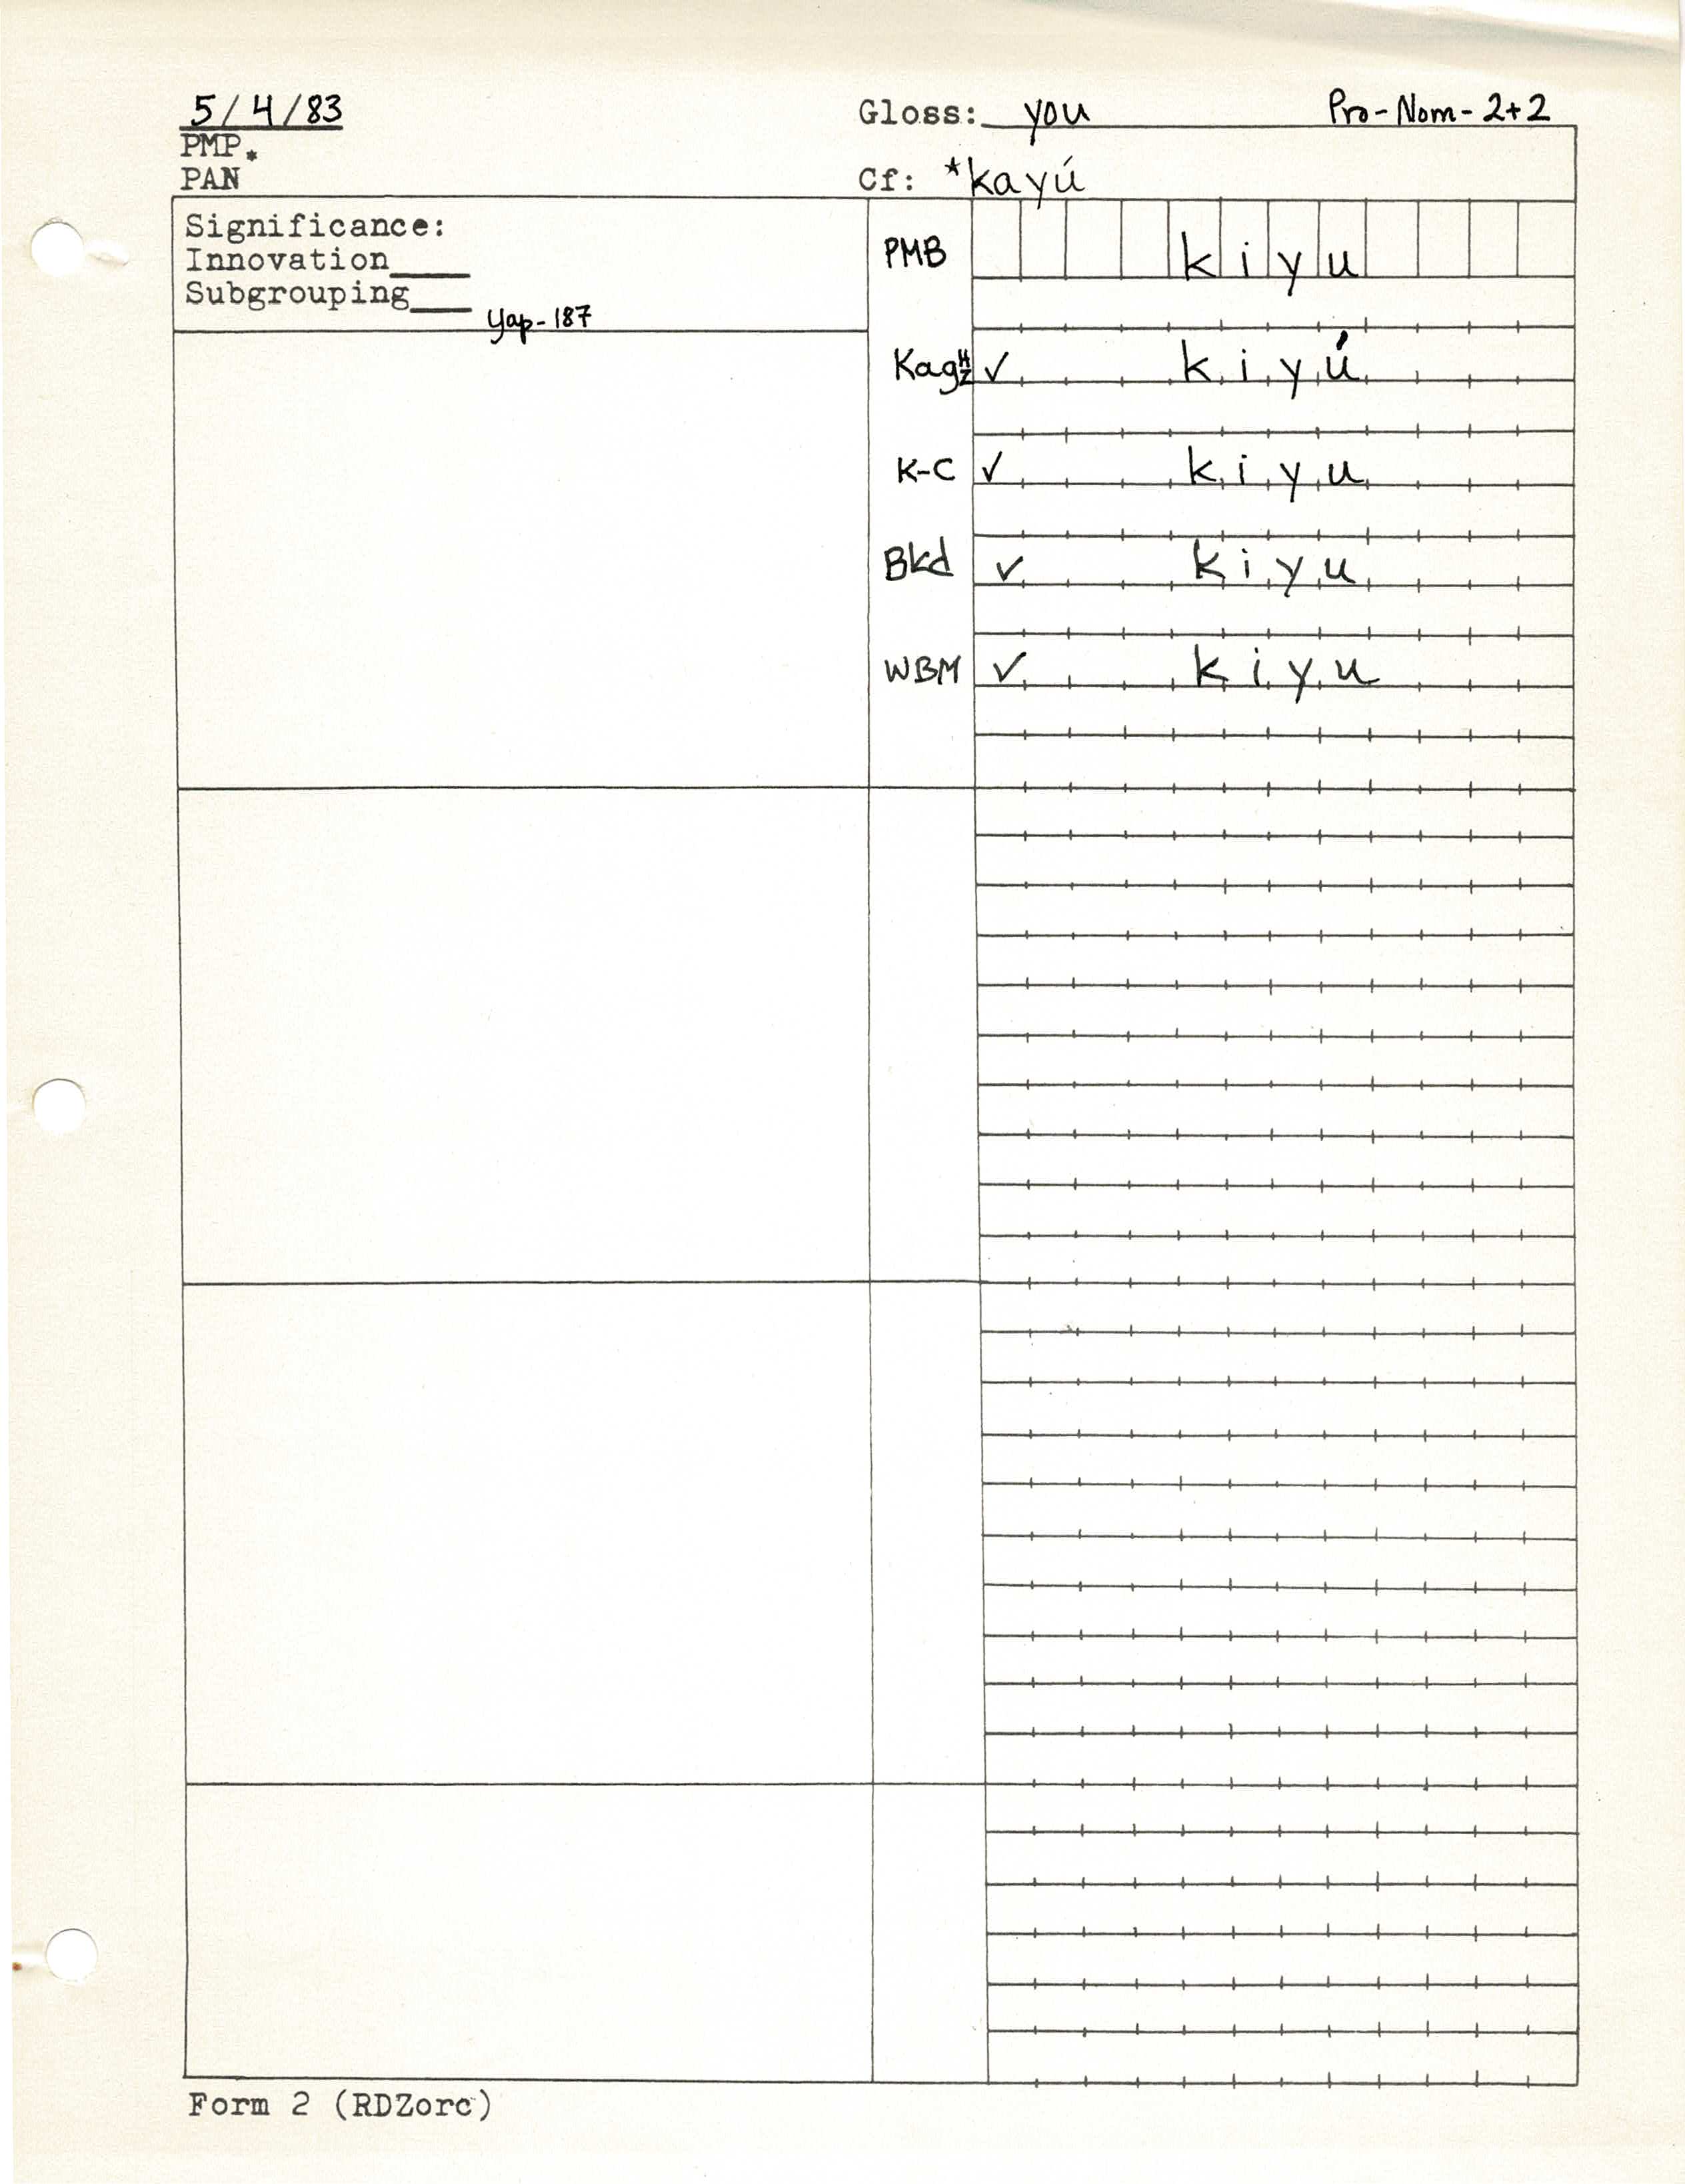 5/4/83 Gloss: you Pro-Nom-2+2
PMP*
PAN Cf: *kayú
Significance:
Innovation____
Subgrouping____
Yap-187
PMB kiyu
Kag ✓ kiyú
K-C ✓ kiyu
Bkd ✓ kiyu
WBM ✓ kiyu
Form 2 (RDZorc)